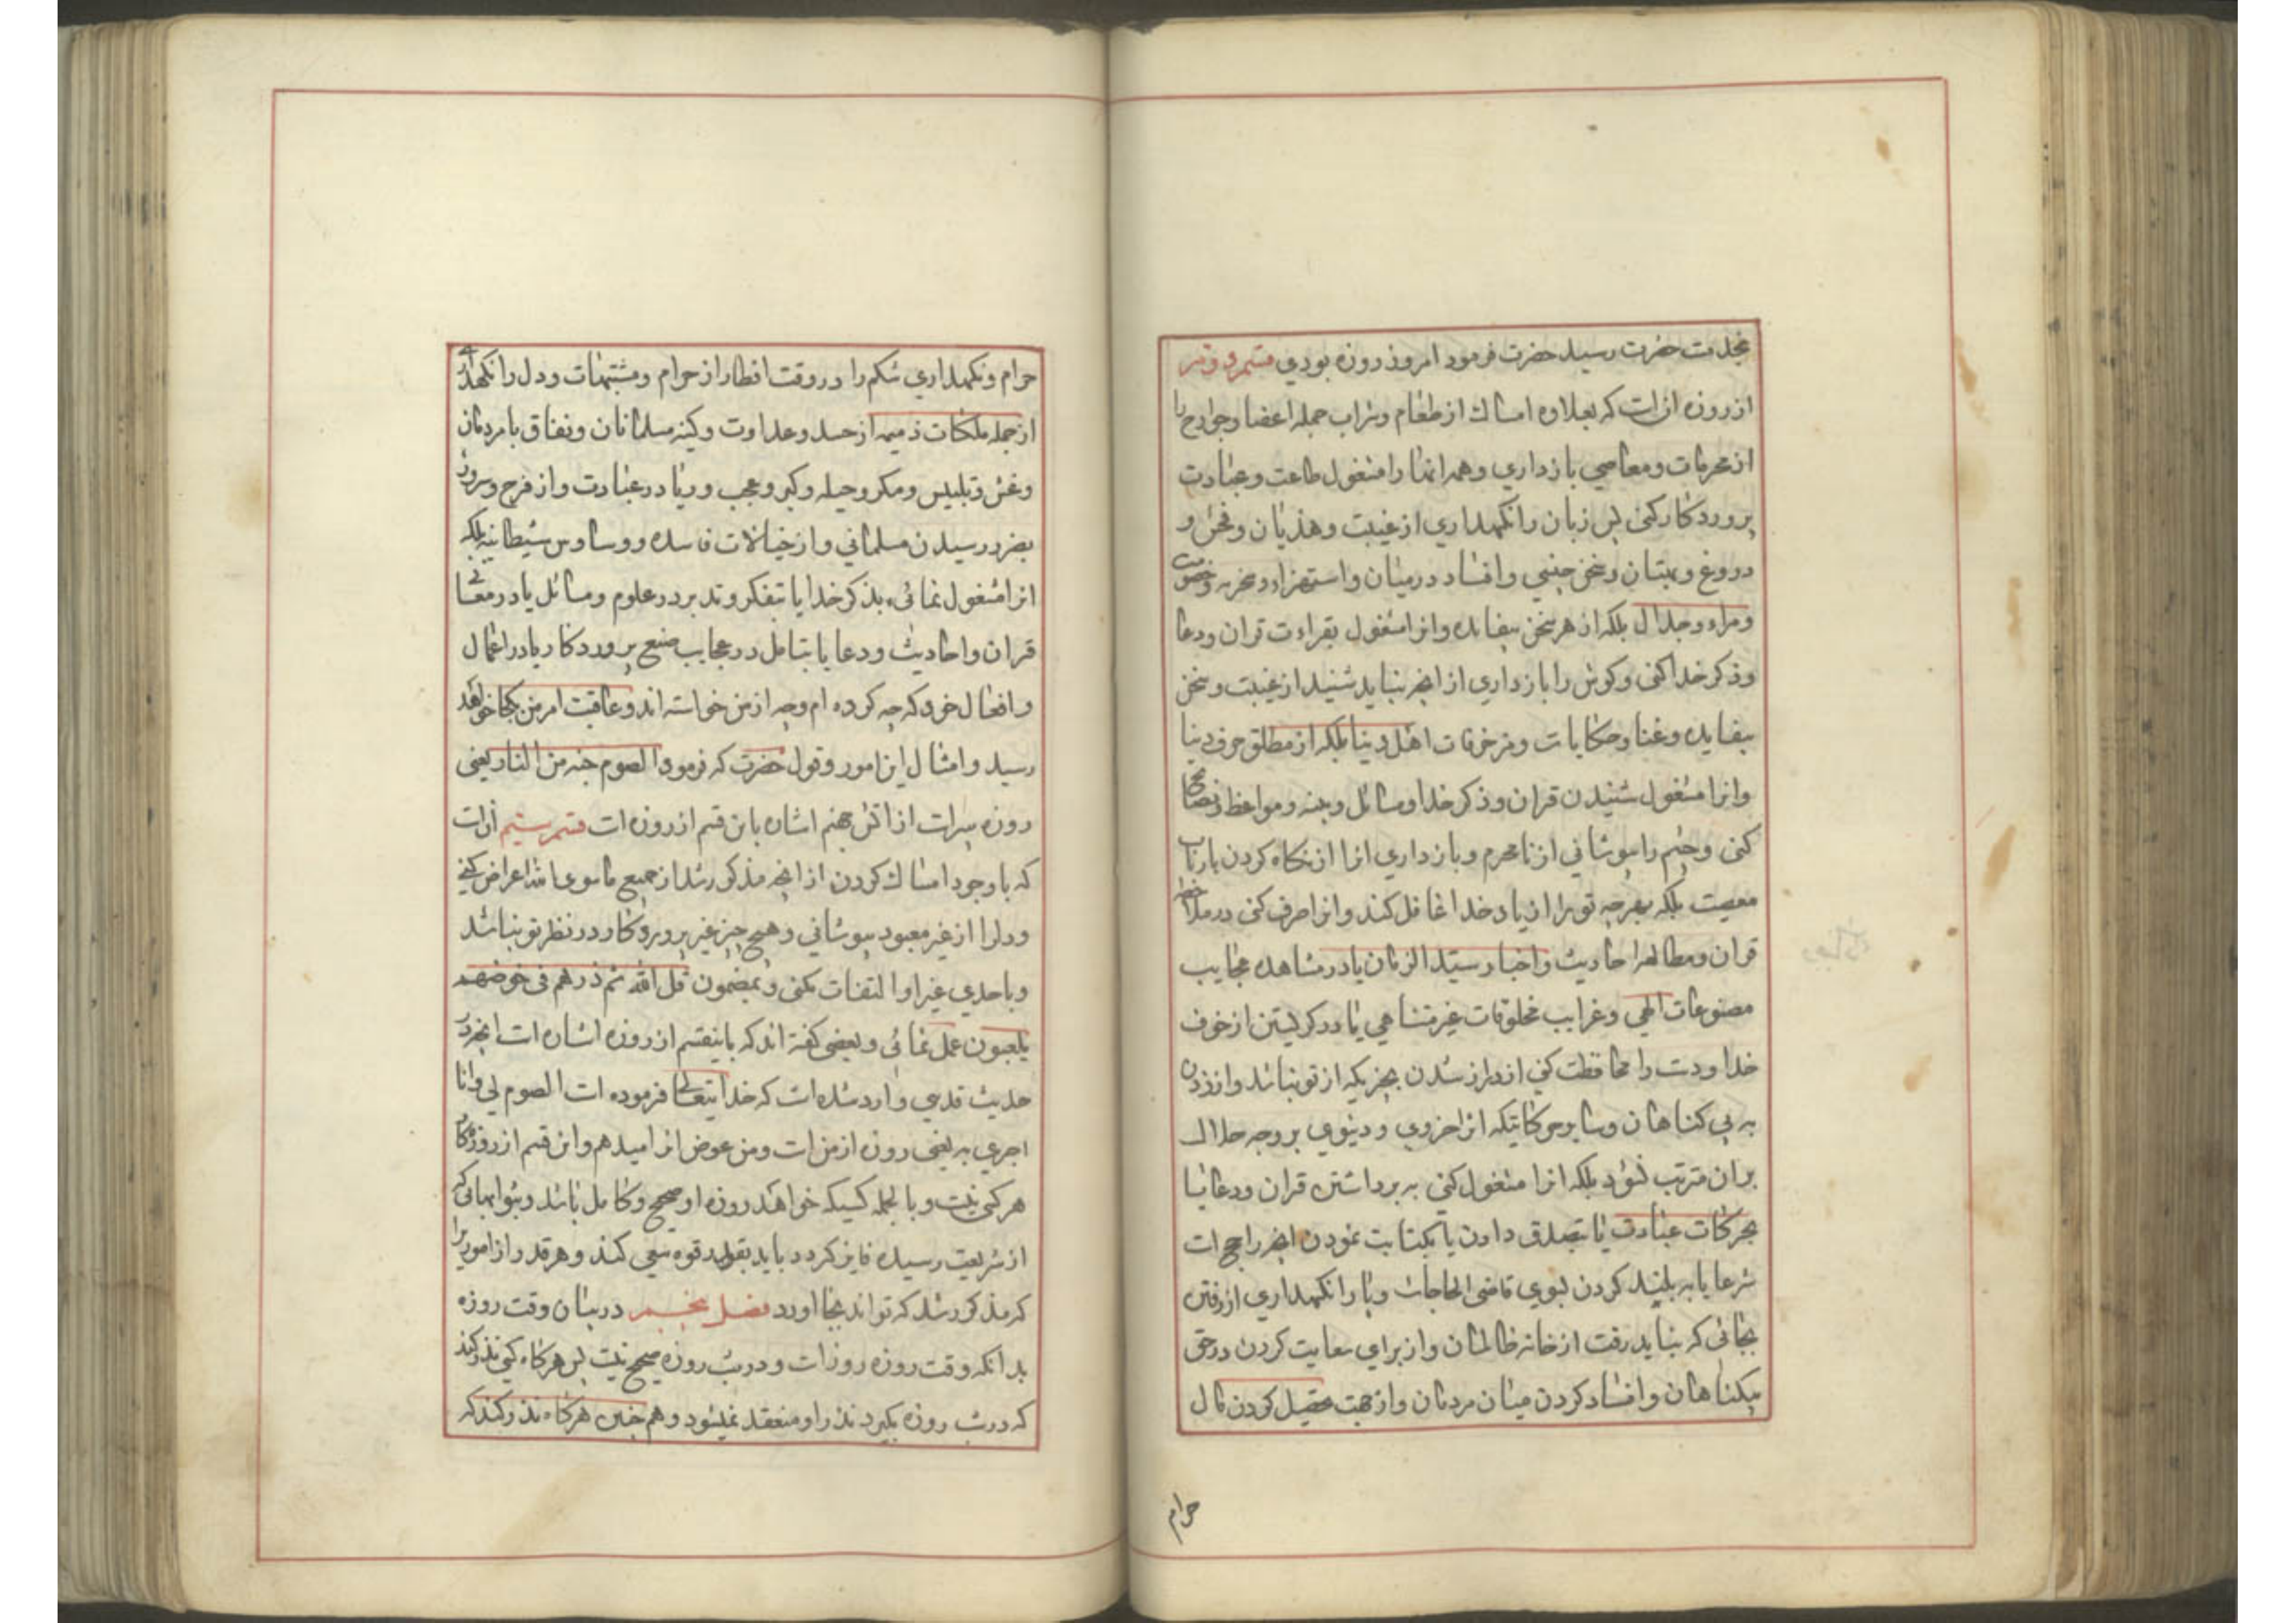 بخدمت حضرت رسید حضرت فرمود امروز روزه بودی قسم دویم
از روزه انست که بعلاوه امساک از طعام وشراب جمله اعضا وجوارح را
از محرمات ومعاصی بازداری وهمه انها را مشغول طاعت وعبادت
پروردکار کنی پس زبان را نکهداری از غیبت وهذیان وفحش و
دروغ وبهتان وسخن چینی وافساد در میان واستهزاء وسخریه وخصومت
ومراء وجدال بلکه از هر سخن بیفایده وانرا مشغول بقراءت قران ودعا
وذکر خدا کنی وکوش را بازداری از انچه نباید شنید از غیبت وسخن
بیفایده وغنا وحکایات ومزخرفات اهل دنیا بلکه از مطلق حرف دنیا
وانرا مشغول شنیدن قران وذکر خدا ومسائل دینیه ومواعظ ونصایح
کنی وچشم را بپوشانی از نامحرم وبازداری انرا از نکاه کردن بارباب
معصیت بلکه بهرچه تو را از یاد خدا غافل کند وانرا صرف کنی در ملاحظه
قران ومطالعه احادیث واخبار سیّد الزمان یا در مشاهده عجایب
مصنوعات الهی وغرایب مخلوقات غیر متناهی یا در کریستن از خوف
خدا ودست را محافظت کنی از دراز شدن بچیزیکه از تو نباشد وازردن
به بی کناهان وسایر حرکاتیکه اثر اخروی ودنیوی بر وجه حلال
بران مترتب نشود بلکه انرا مشغول کنی به برداشتن قران ودعا یا
بحرکات عبادت یا بتصدق دادن یا بکتابت نمودن انچه راجح است
شرعا یا به بلند کردن بسوی قاضی الحاجات وپا را نکهداری از رفتن
بجائی که نباید رفت از خانه ظالمان واز برای سعایت کردن در حق
بیکناهان وافساد کردن میان مردمان واز جهت تحصیل کردن مال
حرام
حرام ونکهداری شکم را در وقت افطار از حرام ومشتبهات ودل را نکهداری
از جمله ملکات ذمیمه از حسد وعداوت وکینه مسلمانان ونفاق با مردمان
وغش وتلبیس ومکر وحیله وکبر وعجب وریا در عبادت واز فرح وسرور
بضرر رسیدن مسلمانی واز خیالات فاسده ووساوس شیطانیه بلکه
انرا مشغول نمائی بذکر خدا یا بتفکر وتدبر در علوم ومسائل یا در معانی
قران واحادیث ودعا یا بتامل در عجایب صنع پروردکار یا در اعمال
وافعال خود که چه کرده ام وچه از من خواسته اند وعاقبت امر من بکجا خواهد
رسید وامثال این امور وقول حضرت که فرمود الصوم جنه من النار یعنی
روزه سپر است از اتش جهنم اشاره باین قسم از روزه است قسم سیّم انست
که با وجود امساک کردن از انچه مذکور شد از جمیع ماسوی الله اعراض کنی
ودلرا از غیر معبود بپوشانی وهیچ چیز غیر پروردکار در نظر تو نباشد
وباحدی غیر او التفات نکنی وبمضمون قل الله ثم ذرهم فی خوضهم
یلعبون عمل نمائی وبعضی کفته اند که باینقسم از روزه اشاره است انچه در
حدیث قدسی وارد شده است که خدا یتعالی فرموده است الصوم لی وانا
اجزی به یعنی روزه از من است ومن عوض انرا میدهم واین قسم از روزه کار
هر کسی نیست وبالجمله کسیکه خواهد روزه او صحیح وکامل باشد وبثوابهائی که
از شریعت رسیده فایز کردد باید بقدر قوه سعی کند وهر قدر از امور را
که مذکور شد که تواند بجا اورد فصل پنجم در بیان وقت روزه
بدانکه وقت روزه روز است ودر شب روزه صحیح نیست پس هرکاه کسی نذر کند
که در شب روزه بکیرد نذر او منعقد نمیشود وهم چنین هرکاه نذر کند که